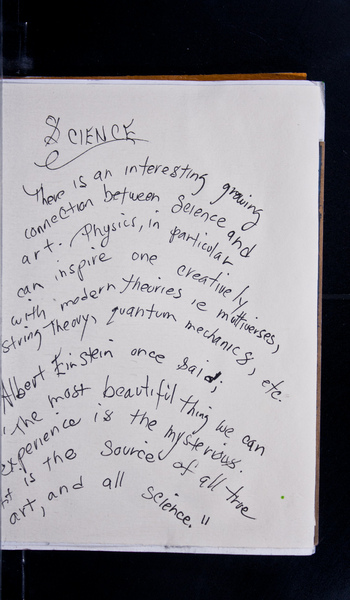 SCIENCE
There is an interesting growing
connection between Science and
art. Physics, in particular
can inspire one creatively
with modern theories ie multiverses,
String Theory, quantum mechanics, etc.
Albert Einstein once said;
"The most beautiful thing we can
experience is the mysterious.
It is the source of all true
art, and all science."